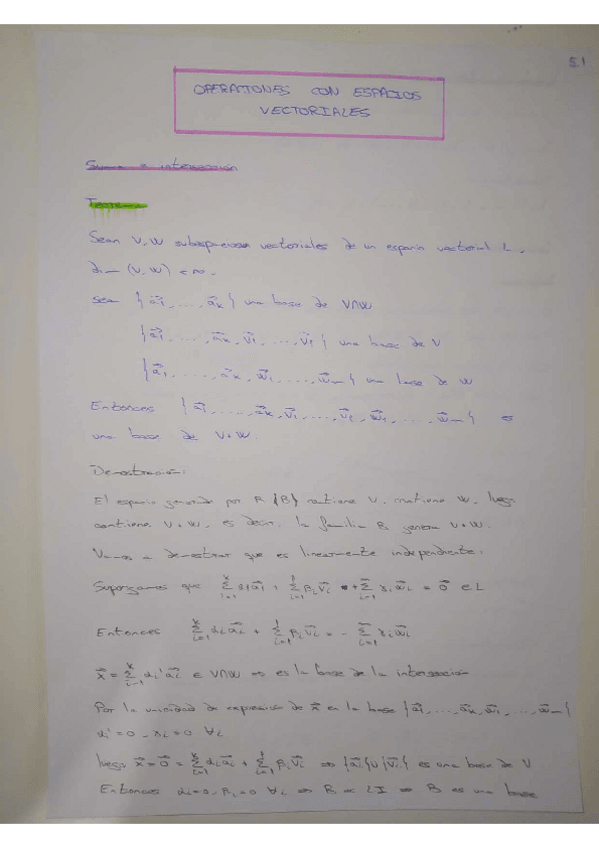 5.1
OPERACIONES CON ESPACIOS
VECTORIALES
Suma e intersección
Teorema
Sean V, W subespacios vectoriales de un espacio vectorial L,
dim (V, W) < ∞.
Sea {a⃗1, ..., a⃗k} una base de V∩W
{a⃗1, ..., a⃗k, v⃗1, ..., v⃗l} una base de V
{a⃗1, ..., a⃗k, w⃗1, ..., w⃗m} una base de W
Entonces {a⃗1, ..., a⃗k, v⃗1, ..., v⃗l, w⃗1, ..., w⃗m} es
una base de V+W.
Demostración:
El espacio generado por {B} contiene V, contiene W, luego
contiene V+W, es decir, la familia B genera V+W.
Vamos a demostrar que es linealmente independiente:
Supongamos que Σ αi a⃗i + Σ βi v⃗i + Σ γi w⃗i = 0⃗ ∈ L
Entonces Σ αi a⃗i + Σ βi v⃗i = - Σ γi w⃗i
x⃗ = Σ αi' a⃗i ∈ V∩W ⇒ es la base de la intersección
Por la unicidad de expresión de x⃗ en la base {a⃗1, ..., a⃗k, w⃗1, ..., w⃗m}
αi' = 0, γi = 0 ∀i
luego x⃗ = 0⃗ = Σ αi a⃗i + Σ βi v⃗i ⇒ {a⃗i} ∪ {v⃗i} es una base de V
Entonces αi = 0, βi = 0 ∀i ⇒ B es LI ⇒ B es una base